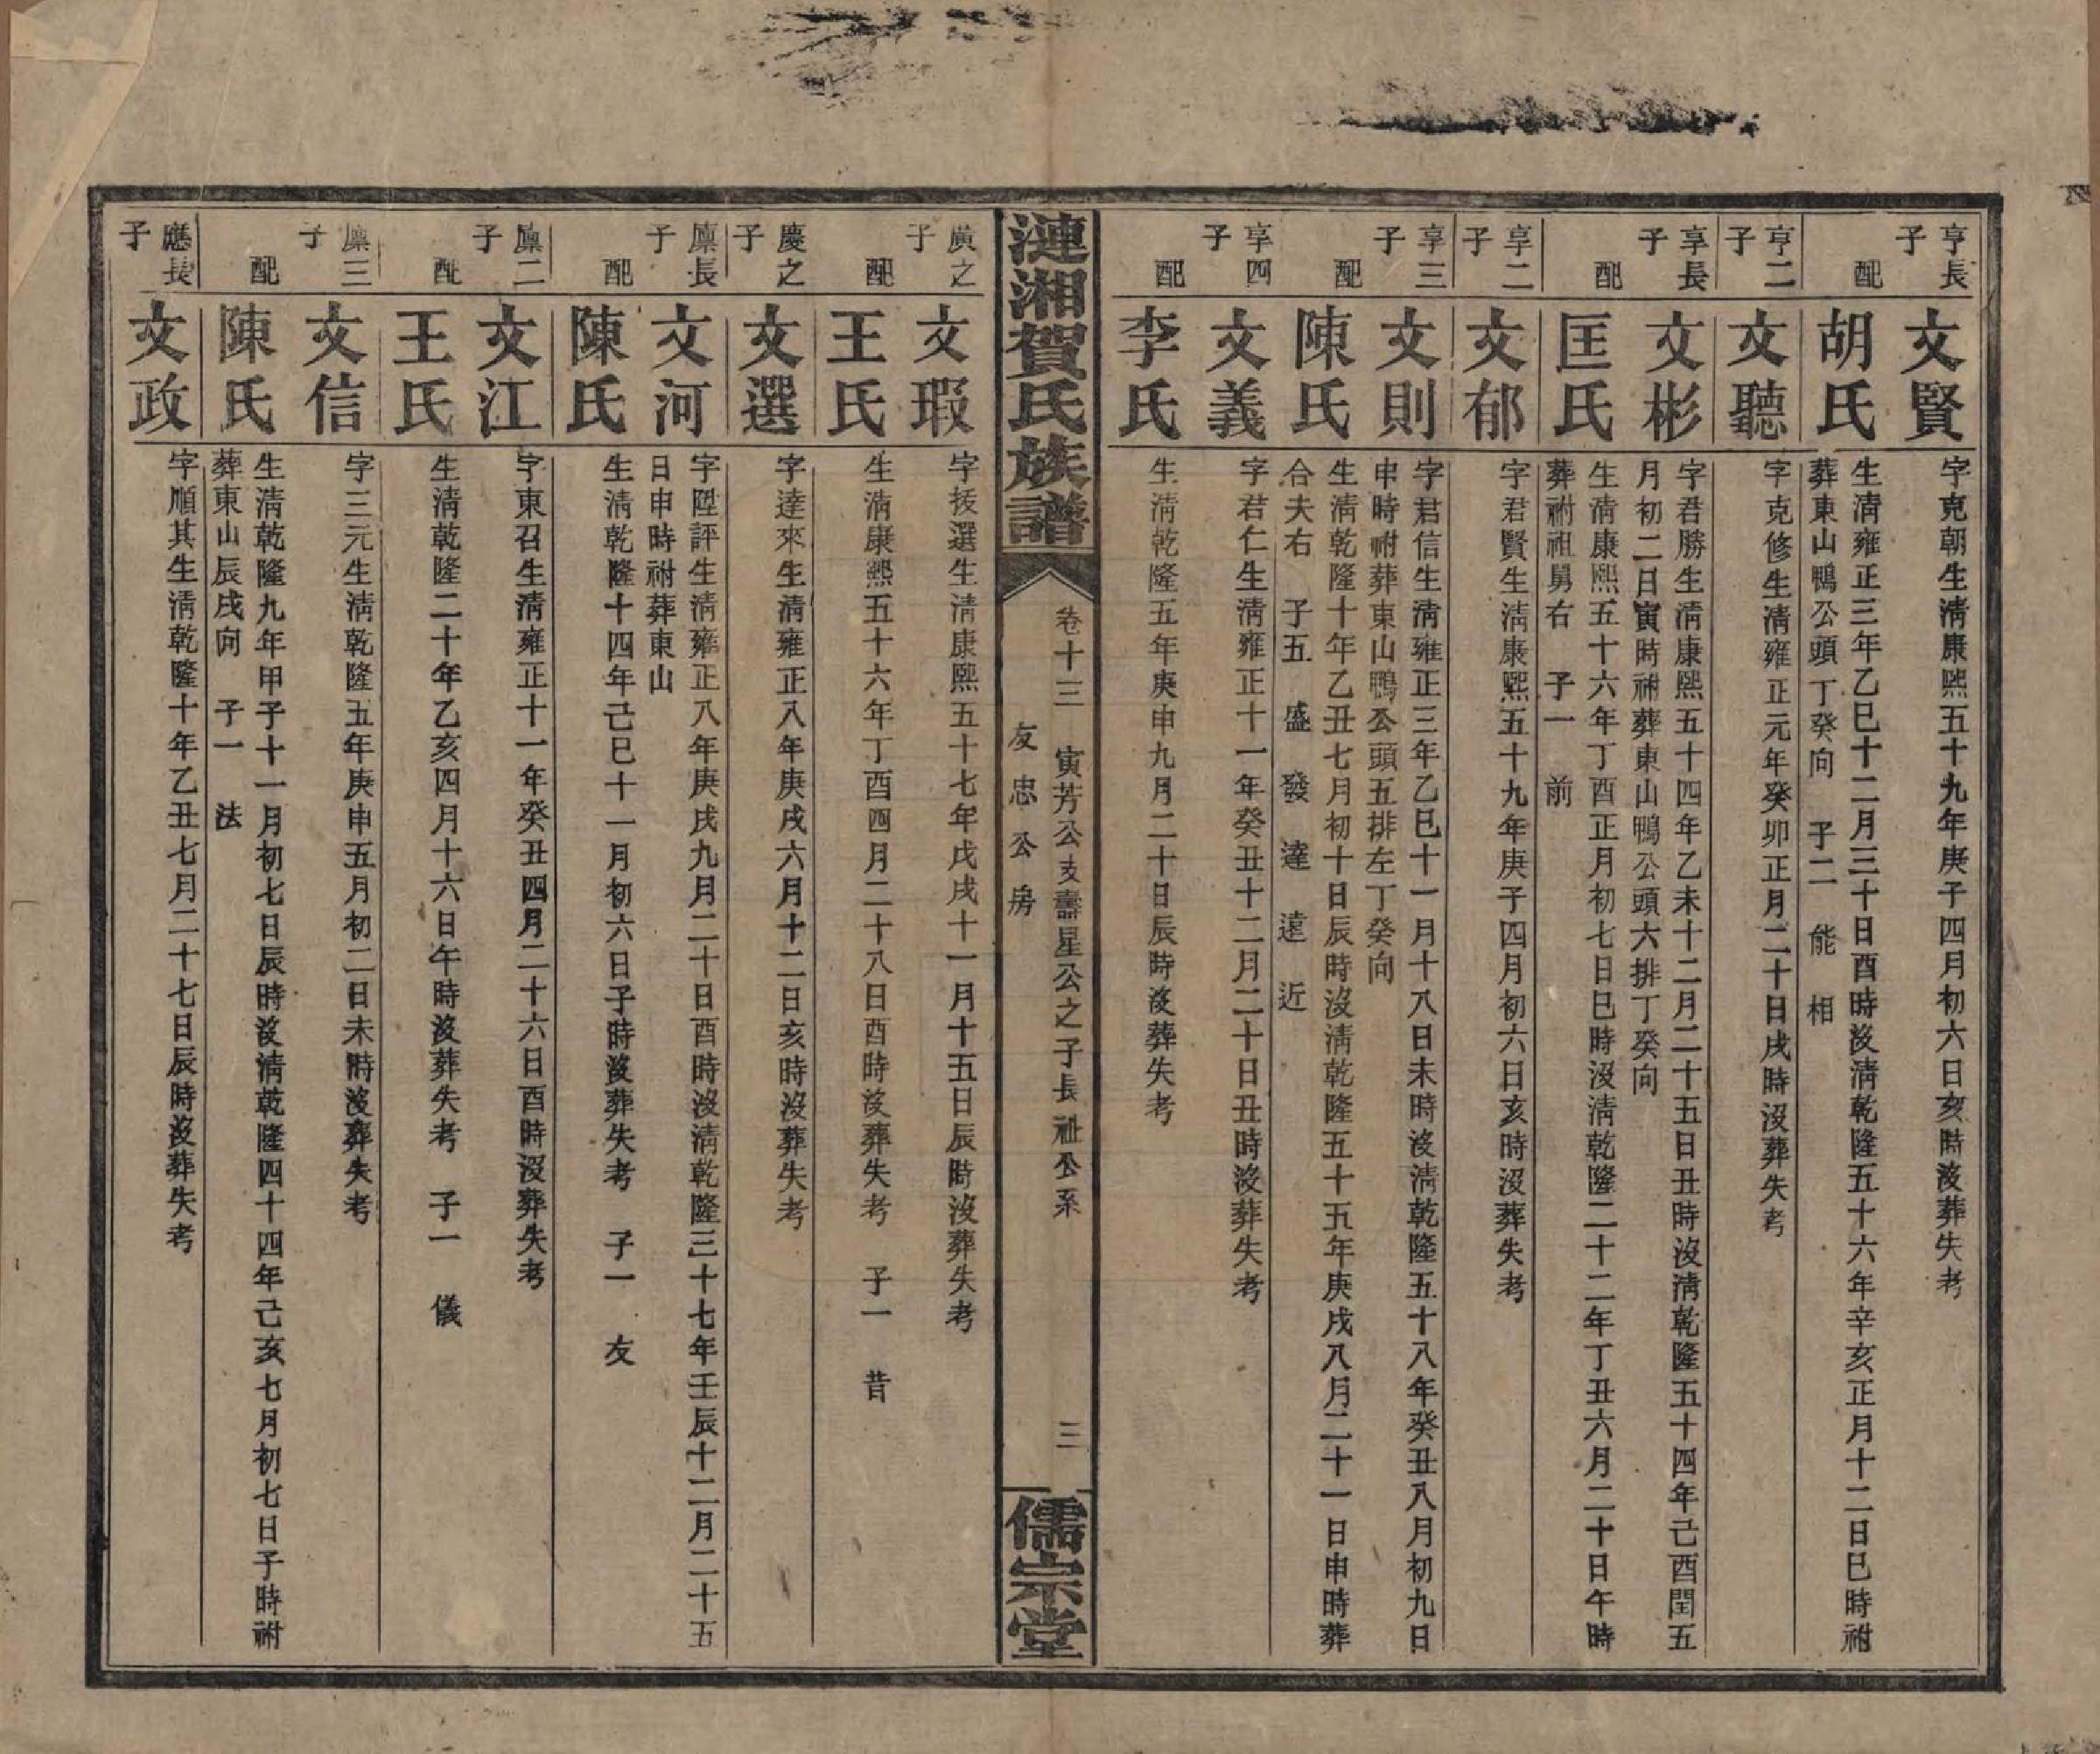 亨長子
文賢
字克朝生淸康熙五十九年庚子四月初六日亥時沒葬失考
配
胡氏
生淸雍正三年乙巳十二月三十日酉時沒淸乾隆五十六年辛亥正月十二日巳時祔
葬東山鴨公頭丁癸向　子二　能　相
亨二子
文聽
字克修生淸雍正元年癸卯正月二十日戌時沒葬失考
享長子
文彬
字君勝生淸康熙五十四年乙未十二月二十五日丑時沒淸乾隆五十四年己酉閏五
月初二日寅時祔葬東山鴨公頭六排丁癸向
配
匡氏
生淸康熙五十六年丁酉正月初七日巳時沒淸乾隆二十二年丁丑六月二十日午時
葬祔祖舅右　子一　前
享二子
文郁
字君賢生淸康熙五十九年庚子四月初六日亥時沒葬失考
享三子
文則
字君信生淸雍正三年乙巳十一月十八日未時沒淸乾隆五十八年癸丑八月初九日
申時祔葬東山鴨公頭五排左丁癸向
配
陳氏
生淸乾隆十年乙丑七月初十日辰時沒淸乾隆五十五年庚戌八月二十一日申時葬
合夫右　子五　盛　發　達　遠　近
享四子
文義
字君仁生淸雍正十一年癸丑十二月二十日丑時沒葬失考
配
李氏
生淸乾隆五年庚申九月二十日辰時沒葬失考
漣湘賀氏族譜
卷十三　寅芳公支壽星公之子長祉公系
友忠公房
三
儒宗堂
廣之子
文瑕
字拔選生淸康熙五十七年戊戌十一月十五日辰時沒葬失考
配
王氏
生淸康熙五十六年丁酉四月二十八日酉時沒葬失考　子一　昔
慶之子
文選
字達來生淸雍正八年庚戌六月十二日亥時沒葬失考
廩長子
文河
字陞評生淸雍正八年庚戌九月二十日酉時沒淸乾隆三十七年壬辰十二月二十五
日申時祔葬東山
配
陳氏
生淸乾隆十四年己巳十一月初六日子時沒葬失考　子一　友
廩二子
文江
字東召生淸雍正十一年癸丑四月二十六日酉時沒葬失考
配
王氏
生淸乾隆二十年乙亥四月十六日午時沒葬失考　子一　儀
廩三子
文信
字三元生淸乾隆五年庚申五月初二日未時沒葬失考
配
陳氏
生淸乾隆九年甲子十一月初七日辰時沒淸乾隆四十四年己亥七月初七日子時祔
葬東山辰戌向　子一　法
應長子
文政
字順其生淸乾隆十年乙丑七月二十七日辰時沒葬失考